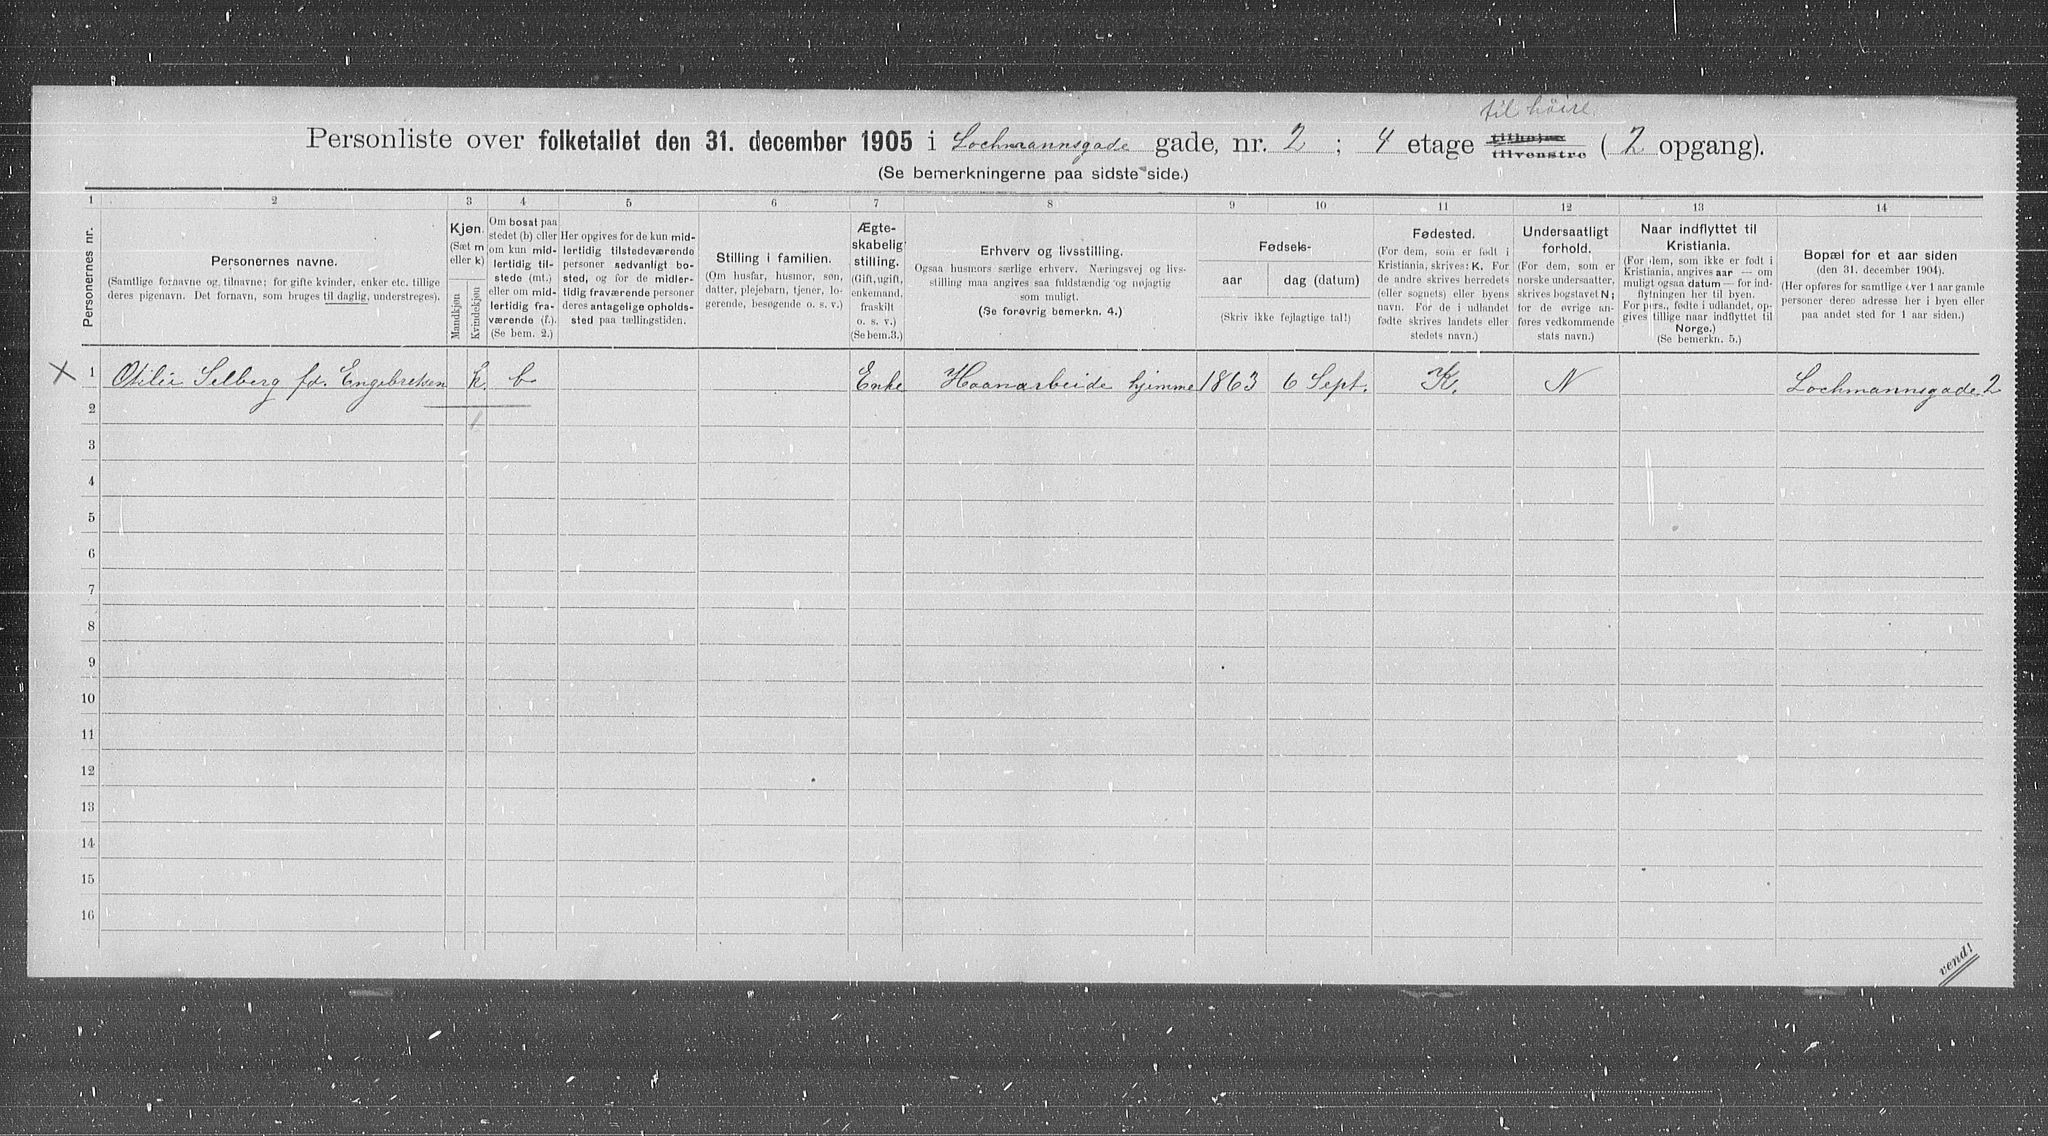 til höire
Personliste over folketallet den 31. december 1905 i Lochmannsgade gade, nr. 2 ; 4 etage tilhøjre tilvenstre ( 2 opgang).
(Se bemerkningerne paa sidste side.)
1 2 3 4 5 6 7 8 9 10 11 12 13 14
Personernes nr.
Personernes navne.
(Samtlige fornavne og tilnavne; for gifte kvinder, enker etc. tillige
deres pigenavn. Det fornavn, som bruges til daglig, understreges).
Kjøn.
(Sæt m
eller k)
Mandkjøn
Kvindekjøn
Om bosat paa
stedet (b) eller
om kun mid-
lertidig til-
stede (mt.)
eller om mid-
lertidig fra-
værende (f.).
(Se bem. 2.)
Her opgives for de kun mid-
lertidig tilstedeværende
personer sedvanligt bo-
sted, og for de midler-
tidig fraværende personer
deres antagelige opholds-
sted paa tællingstiden.
Stilling i familien.
(Om husfar, husmor, søn,
datter, plejebarn, tjener, lo-
gerende, besøgende o. s. v.)
Ægte-
skabelig
stilling.
(Gift, ugift,
enkemand,
fraskilt
o. s. v.)
(Se bem.3.)
Erhverv og livsstilling.
Ogsaa husmors særlige erhverv. Næringsvej og livs-
stilling maa angives saa fuldstændig og nøjagtig
som muligt.
(Se forøvrig bemerkn. 4.)
Fødsels-
aar
dag (datum)
(Skriv ikke fejlagtige tal!)
Fødested.
(For dem, som er født i
Kristiania, skrives: K. For
de andre skrives herredets
(eller sognets) eller byens
navn. For de i udlandet
fødte skrives landets eller
stedets navn.)
Undersaatligt
forhold.
(For dem, som er
norske undersaatter,
skrives bogstavet N;
for de øvrige an-
føres vedkommende
stats navn.)
Naar indflyttet til
Kristiania.
(For dem, som ikke er født i
Kristiania, angives aar — om
muligt ogsaa datum — for ind-
flytningen her til byen.
For pers., fødte i udlandet, op-
gives tillige naar indflyttet til
Norge.)
(Se bemerkn. 5.)
Bopæl for et aar siden
(den 31. december 1904).
(Her opføres for samtlige over 1 aar gamle
personer deres adresse her i byen eller
paa andet sted for 1 aar siden.)
X 1 Otilie Selberg fd. Engebretsen k. b Enke Haanarbeide hjemme 1863 6 Sept. K. N Lochmannsgade 2
2
1
3
4
5
6
7
8
9
10
11
12
13
14
15
16
vend!